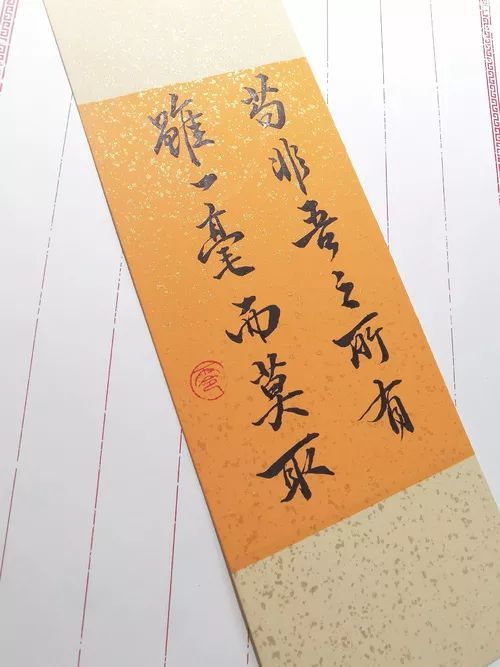 苟非吾之所有
雖一毫而莫取